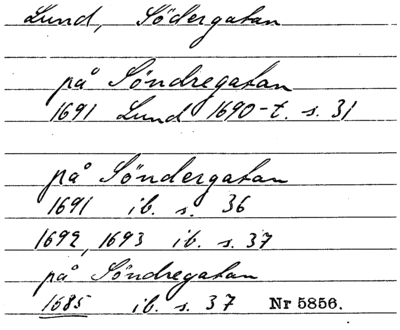 Lund, Södergatan
på Söndregatan
1691 Lund 1690-t. s. 31
på Söndergatan
1691 ib. s. 36
1692, 1693 ib. s. 37
på Söndregatan
1685 ib. s. 37 Nr 5856.